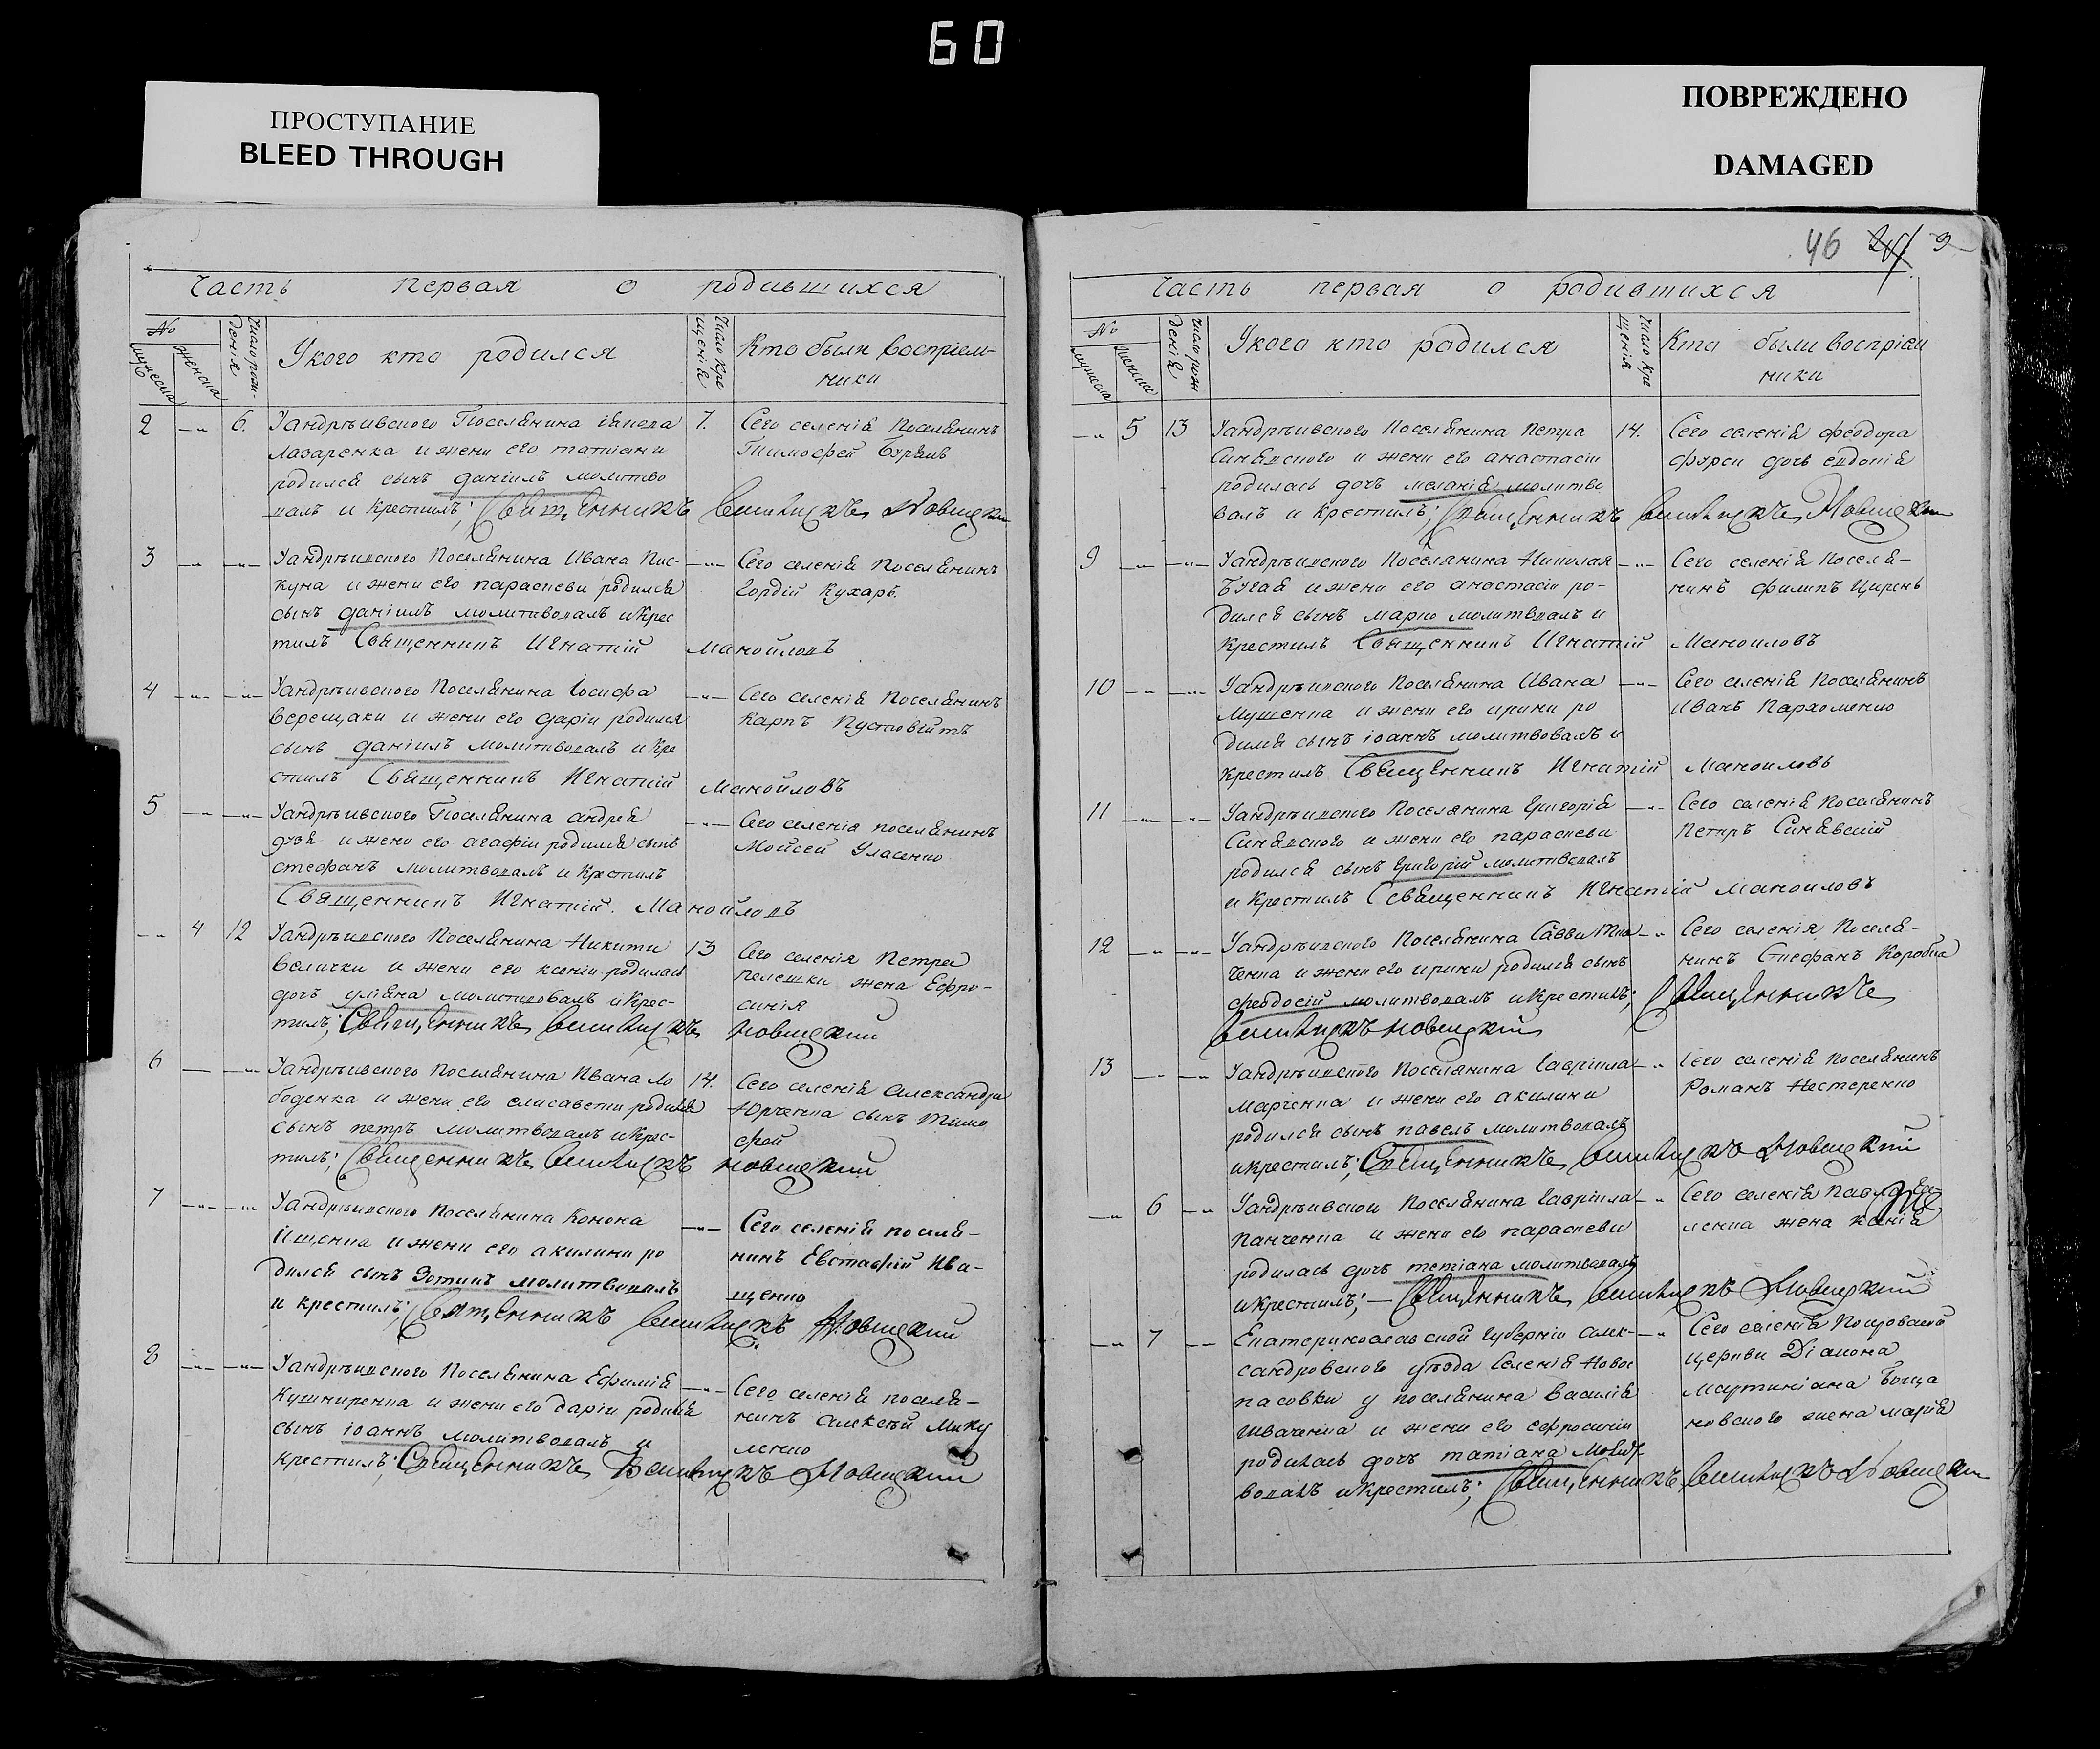 60
ПРОСТУПАНИЕ
BLEED THROUGH
ПОВРЕЖДЕНО
DAMAGED
Часть первая о родившихся
№
Число рож-
дения
У кого кто родился
Число кре
щения
Кто были восприем-
ники
2 6. У андрѣивского Поселянина
Лазаренка и жени его татіани
родился сынъ даніилъ молитво
валъ и крестилъ; Священникъ Новицкий
7. Сего селенія поселянинъ
Тимофей
3 У андрѣивского Поселянина Ивана Пис-
куна и жени его параскеви родился
сынъ даніилъ молитвовалъ и крес
тилъ Священникъ Игнатій Манойловъ
Сего селенія поселянинъ
Гордій Кухарь
4 У андрѣивского Поселянина Іосифа
верещаки и жени его даріи родился
сынъ даніилъ молитвовалъ и кре
стилъ Священникъ Игнатій Манойловъ
Сего селенія поселянинъ
Карпъ Пустовійтъ
5 У андрѣивского Поселянина андрея
и жени его агафіи родился сынъ
стефанъ молитвовалъ и крестилъ
Священникъ Игнатій. Манойловъ
Сего селенія поселянинъ
Мойсей Уласенко
4 12 У андрѣивского Поселянина Никити
велички и жени его ксеніи родилась
дочь уліяна молитвовалъ и крес-
тилъ; Священникъ Новицкий
13 Сего селенія Петра
пелешки жена Ефро-
синія
6 У андрѣивского Поселянина Ивана Ло
боденка и жени его елисавети родился
сынъ петръ молитвовалъ и крес-
тилъ; Священникъ Новицкий
14. Сего селенія александра
Юрченка сынъ Тимо
фей
7 У андрѣивского Поселянина Конона
Ищенка и жени его акилини ро
дился сынъ Зотикъ молитвовалъ
и крестилъ; Священникъ Новицкий
Сего селенія поселя-
нинъ Евстафій Ива-
щенко
8 У андрѣивского Поселянина Ефимія
Кушниренка и жени его даріи родился
сынъ іоаннъ молитвовалъ и
крестилъ; Священникъ Новицкий
Сего селенія поселя-
нинъ алексѣй Мику
ленко
46 9
Часть первая о родившихся
№
Число рож
дения
У кого кто родился
Число кре
щения
Кто были воспріем
ники
5 13 У андрѣивского Поселянина Петра
Синявского и жени его анастасіи
родилась дочь меланія молитво
валъ и крестилъ; Священникъ Новицкий
14. Сего селенія феодора
фурси дочь евдокія
9 У андрѣивского Поселянина Николая
Бугая и жени его анастасіи ро-
дился сынъ марко молитвовалъ и
крестилъ Священникъ Игнатій Маноиловъ
Сего селенія поселя-
нинъ филипъ
10 У андрѣивского Поселянина Ивана
Мушенка и жени его ирини ро
дился сынъ іоаннъ молитвовалъ и
крестилъ Священникъ Игнатій Маноиловъ
Сего селенія поселянинъ
Иванъ Пархоменко
11 У андрѣивского Поселянина Григорія
Синявского и жени его параскеви
родился сынъ григорій молитвовалъ
и крестилъ Священникъ Игнатій Маноиловъ
Сего селенія Поселянинъ
Петръ Синявскій
12 У андрѣивского Поселянина Савви
ченка и жени его ирини родился сынъ
феодосій молитвовалъ и крестилъ; Священникъ
Новицкий
Сего селенія Поселя-
нинъ Стефанъ Коробка
13 У андрѣивского Поселянина Гавріила
Марченка и жени его акилини
родился сынъ павелъ молитвовалъ
и крестилъ; Священникъ Новицкий
Сего селенія Поселянинъ
Романъ Нестеренко
6 У андрѣивского Поселянина Гавріила
Панченка и жени его параскеви
родилась дочь тетіана молитвовалъ
и крестилъ; Священникъ Новицкий
Сего селенія Павла
ленка жена
7 Екатеринославской Губерніи алек-
сандровского уѣзда Селенія Новос
пасовки у поселянина василія
Шваченка и жени его ефросиніи
родилась дочь татіана молит
вовалъ и крестилъ; Священникъ Новицкий
Сего селенія Покровской
церкви Діакона
Мартиніана
новского жена марія